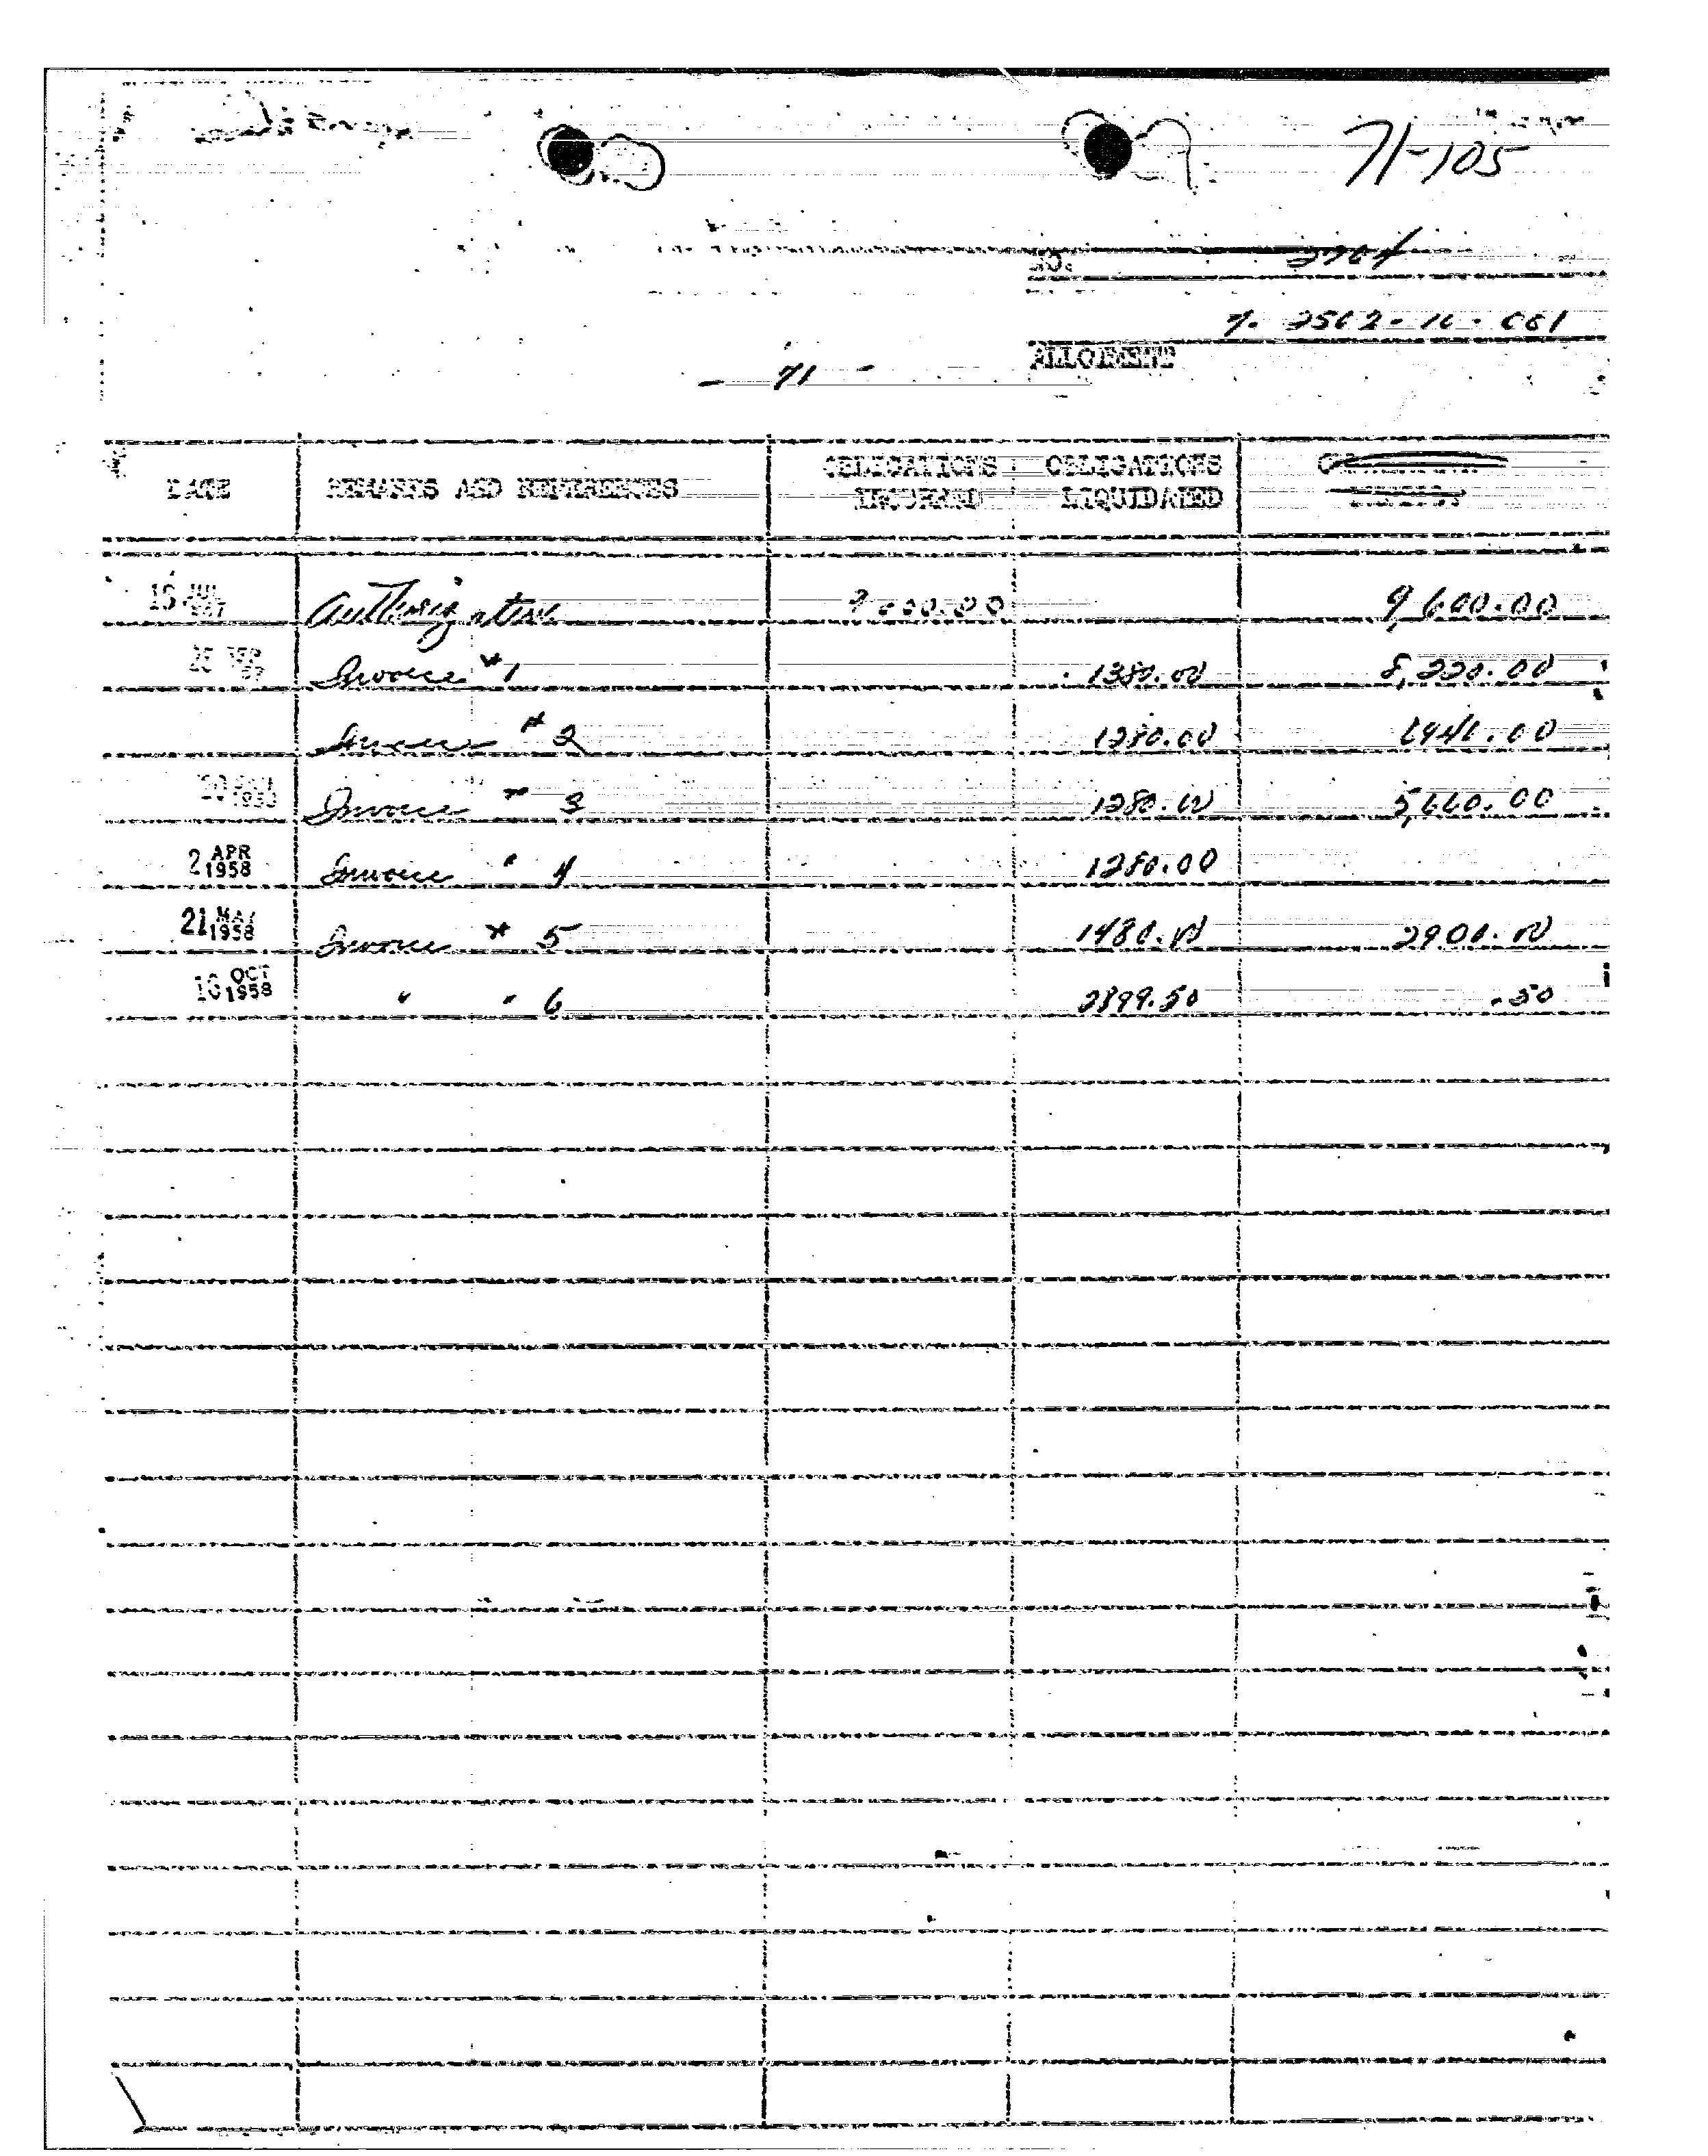 71-105
NO.
ALLOTMENT
71
DATE REMARKS AND REFERENCES OBLIGATIONS INCURRED OBLIGATIONS LIQUIDATED
Authorization 9,600.00
Invoice #1 1380.00 8,220.00
Invoice # 2 1280.00
Invoice " 3 1280.00 5,660.00
2 APR 1958 Invoice " 4 1280.00
21 MAY 1958 Invoice # 5 1480.00 2900.00
16 OCT 1958 " " 6 2899.50 .50